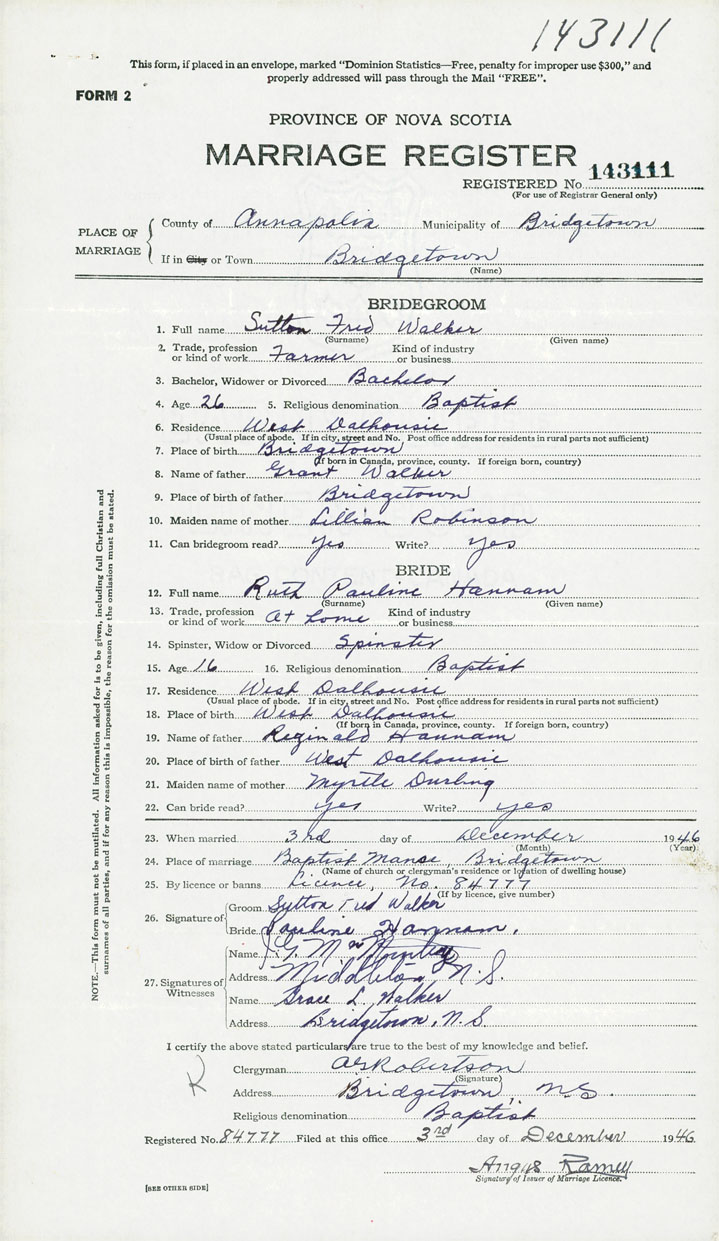 143111
This form, if placed in an envelope, marked “Dominion Statistics—Free, penalty for improper use $300,” and
properly addressed will pass through the Mail “FREE”.
FORM 2
PROVINCE OF NOVA SCOTIA
MARRIAGE REGISTER
REGISTERED No. 143111
(For use of Registrar General only)
PLACE OF MARRIAGE
County of Annapolis Municipality of Bridgetown
If in City or Town Bridgetown
(Name)
BRIDEGROOM
1. Full name Sutton Fred Walker
(Surname) (Given name)
2. Trade, profession or kind of work Farmer Kind of industry or business
3. Bachelor, Widower or Divorced Bachelor
4. Age 26 5. Religious denomination Baptist
6. Residence West Dalhousie
(Usual place of abode. If in city, street and No. Post office address for residents in rural parts not sufficient)
7. Place of birth Bridgetown
(If born in Canada, province, county. If foreign born, country)
8. Name of father Grant Walker
9. Place of birth of father Bridgetown
10. Maiden name of mother Lillian Robinson
11. Can bridegroom read? Yes Write? Yes
BRIDE
12. Full name Ruth Pauline Hannam
(Surname) (Given name)
13. Trade, profession or kind of work At home Kind of industry or business
14. Spinster, Widow or Divorced Spinster
15. Age 16 16. Religious denomination Baptist
17. Residence West Dalhousie
(Usual place of abode. If in city, street and No. Post office address for residents in rural parts not sufficient)
18. Place of birth West Dalhousie
(If born in Canada, province, county. If foreign born, country)
19. Name of father Reginald Hannam
20. Place of birth of father West Dalhousie
21. Maiden name of mother Myrtle Durling
22. Can bride read? Yes Write? Yes
23. When married 3rd day of December 1946
(Month) (Year)
24. Place of marriage Baptist Manse, Bridgetown
(Name of church or clergyman's residence or location of dwelling house)
25. By licence or banns Licence, No. 84777
(If by licence, give number)
26. Signature of
Groom Sutton Fred Walker
Bride Pauline Hannam.
27. Signatures of Witnesses
Name G. M.
Address Middleton, N.S.
Name Grace L. Walker
Address Bridgetown, N.S.
I certify the above stated particulars are true to the best of my knowledge and belief.
Clergyman Robertson
(Signature)
Address Bridgetown, N.S.
Religious denomination Baptist
Registered No. 84777 Filed at this office 3rd day of December 1946
Angus Ramey
Signature of Issuer of Marriage Licence.
[SEE OTHER SIDE]
NOTE.—This form must not be mutilated. All information asked for is to be given, including full Christian and
surnames of all parties, and if for any reason this is impossible, the reason for the omission must be stated.